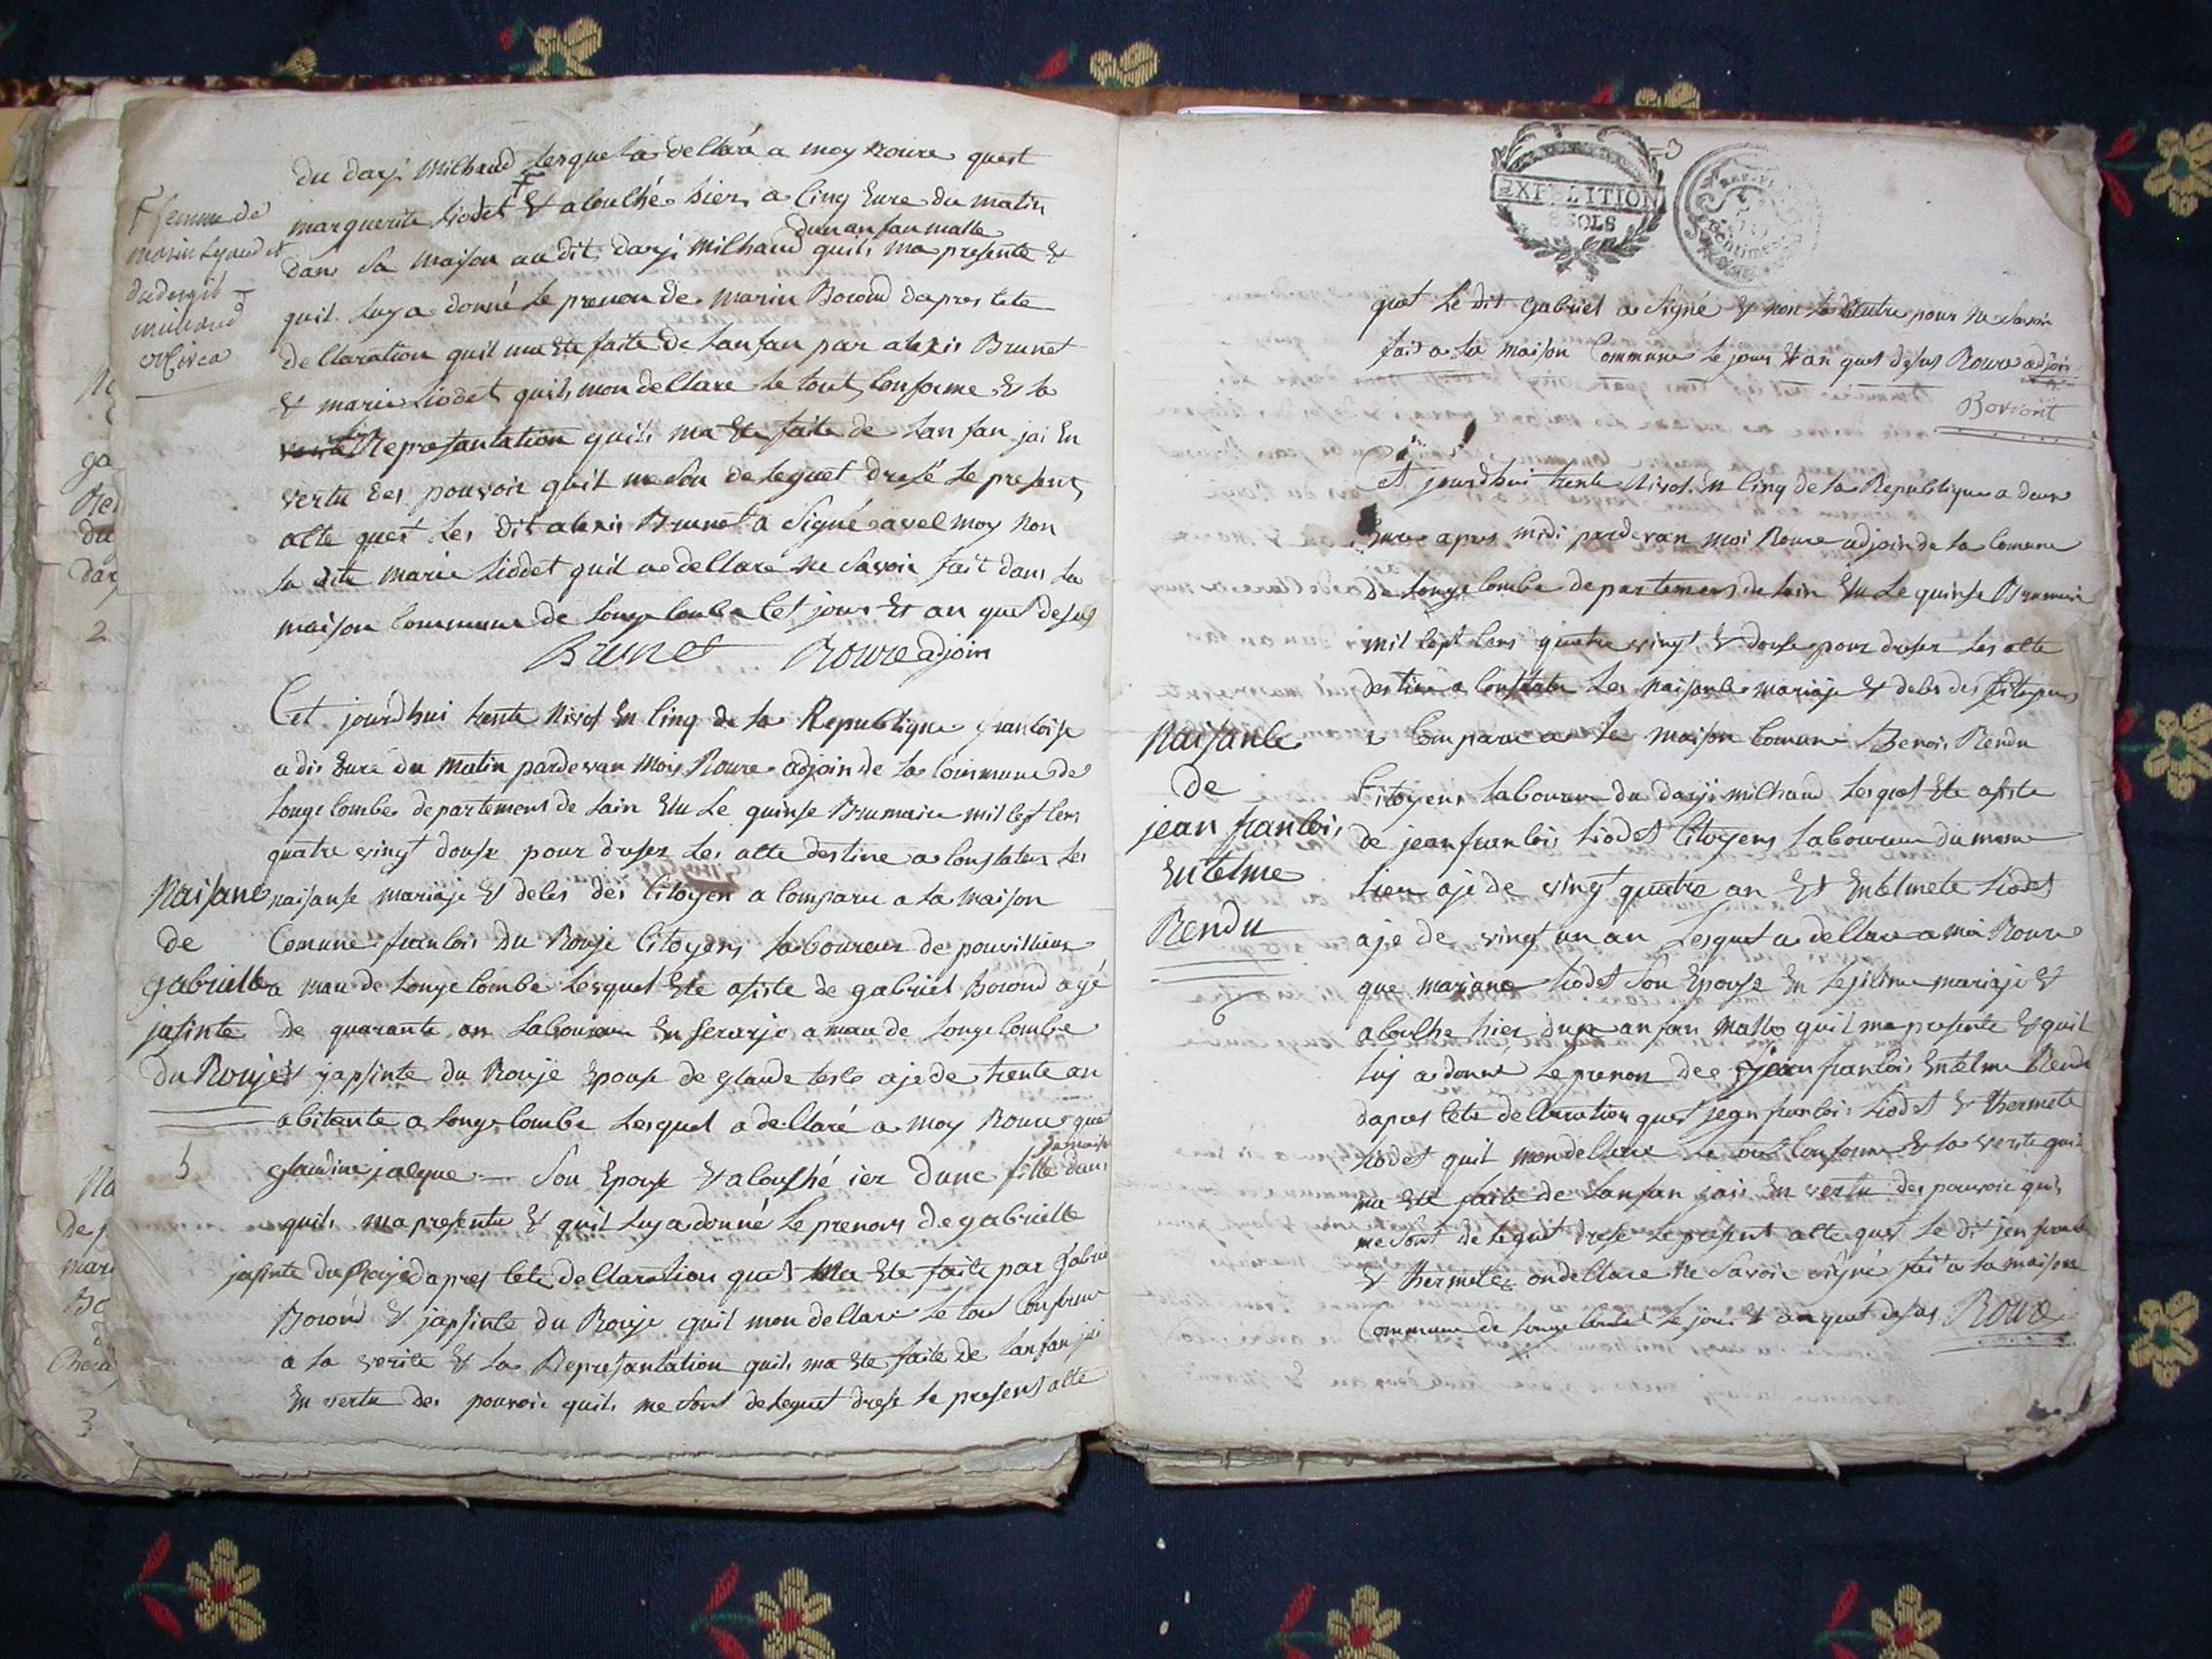 du darj. milhaud lesquel a dellaré a moy Roure quest
marguerite liodet F Et aloulhé hier a linq Eure du matin
dun anfan malle
dans sa maison audit darji milhaud quils ma presente Et
quil luy a donné le prenon de marin Borond dapres lete
dellaration quil ma Ete faite de lanfan par alexis Brunet
Et marie liodet quils mon dellare le tout lonforme Et la
verité Represantation quils ma Ete faite de lanfan jai En
vertu des pouvoir quil me son deleguet dresé le presens
alte quet les dit alexis Brunet a Signé avel moy non
la dite marie liodet quil a dellaré ne savoir fait dans la
maison lommune de longelombe let jour Et an quet desus
Brunet Roure adjoin
F femme de
marin
milhaud
Cet jourdhui trente Nivos En linq de la Republique franloise
a dis Eure du matin pardevan moy Roure adjoin de la lommune de
longelombe departement de lain Elu le quinse Brumaire mil lept lens
quatre vingt douse pour dreser les alte destine a lonstater les
naisanse mariaje Et deles des litoyen a lomparu a la maison
Comune franlois du Rouje litoyens laboureur de pouvilieux
a mau de longelombe lesquel Ete asiste de gabriel Borond agé
de quarante an laboureur En serarje a mau de longelombe
Et japsinte du Rouje Epouse de glaude teste aje de trente an
abitante a longelombe lesquel a dellaré a moy Roure que
glaudine jalque — son Epouse Et aloulhé ier dune fille dans
sa maison
quils ma presentu Et quil luy a donné le prenons de gabrielle
jasinte du Rouje dapres lete dellaration quet ma Ete faite par gabriel
Borond Et japsinte du Rouje quil mon dellare le tout lonforme
a la verite Et la Represantation quils ma Ete faite de lanfan jai
En vertu des pouvoir quils me sont deleguet drese le presens alte
Naisane
de
gabrielle
jasinte
du Rouje
EXPEDITION
SOLS
REP.
Centime
quet le dit gabriel a signé Et non la lautre pour ne savoir
fait a la maison Commune le jour Et an quet desus Roure adjoin
Boront
Cet jourdhui trente Nivos En linq de la Republique a deux
Eure apres midi pardevan moi Roure adjoin de la lomune
de longelombe departement de lain Elu le quinse Brumaire
mil lept lens quatre vingt Et douse pour dreser les alte
destine a lonstater les naisanle mariaje Et deles des litoyens
a lomparu a la maison lomune Benois Rendu
litoyens laboureur du darji milhaud lesquel Ete asiste
de jean franlois liodet litoyens laboureur du meme
lieu aje de vingt quatre an Et Entelmete liodet
aje de vingt un an lesquel a dellare a moi Roure
que mariane liodet son Epouse En lejitime mariaje Et
aloulhe hier dun anfan malle quil ma presente Et quil
luy a donné le prenon de jean franlois Entelme Rendu
dapres lete dellaration quet jean franlois liodet Et thermete
liodet quil mon dellare le tout lonforme Et la verite quil
ma Ete faite de lanfan jai En vertu des pouvoir quils
me sont deleguet drese le present alte quet le dit jen franlois
Et thermete on dellare ne savoir signé fait a la maison
Commune de longelombe le jour Et an quet desus Roure
Naisanle
de
jean franlois
Entelme
Rendu